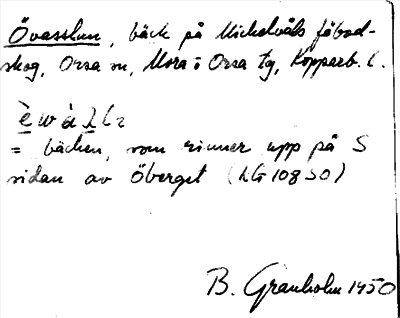 Övasslun, bäck på Mickelvåls fäbod-
skog, Orsa sn, Mora o Orsa tg, Kopparb. l.
= bäcken, som rinner upp på S
sidan av Öberget (LG 10850)
B. Granholm 1950